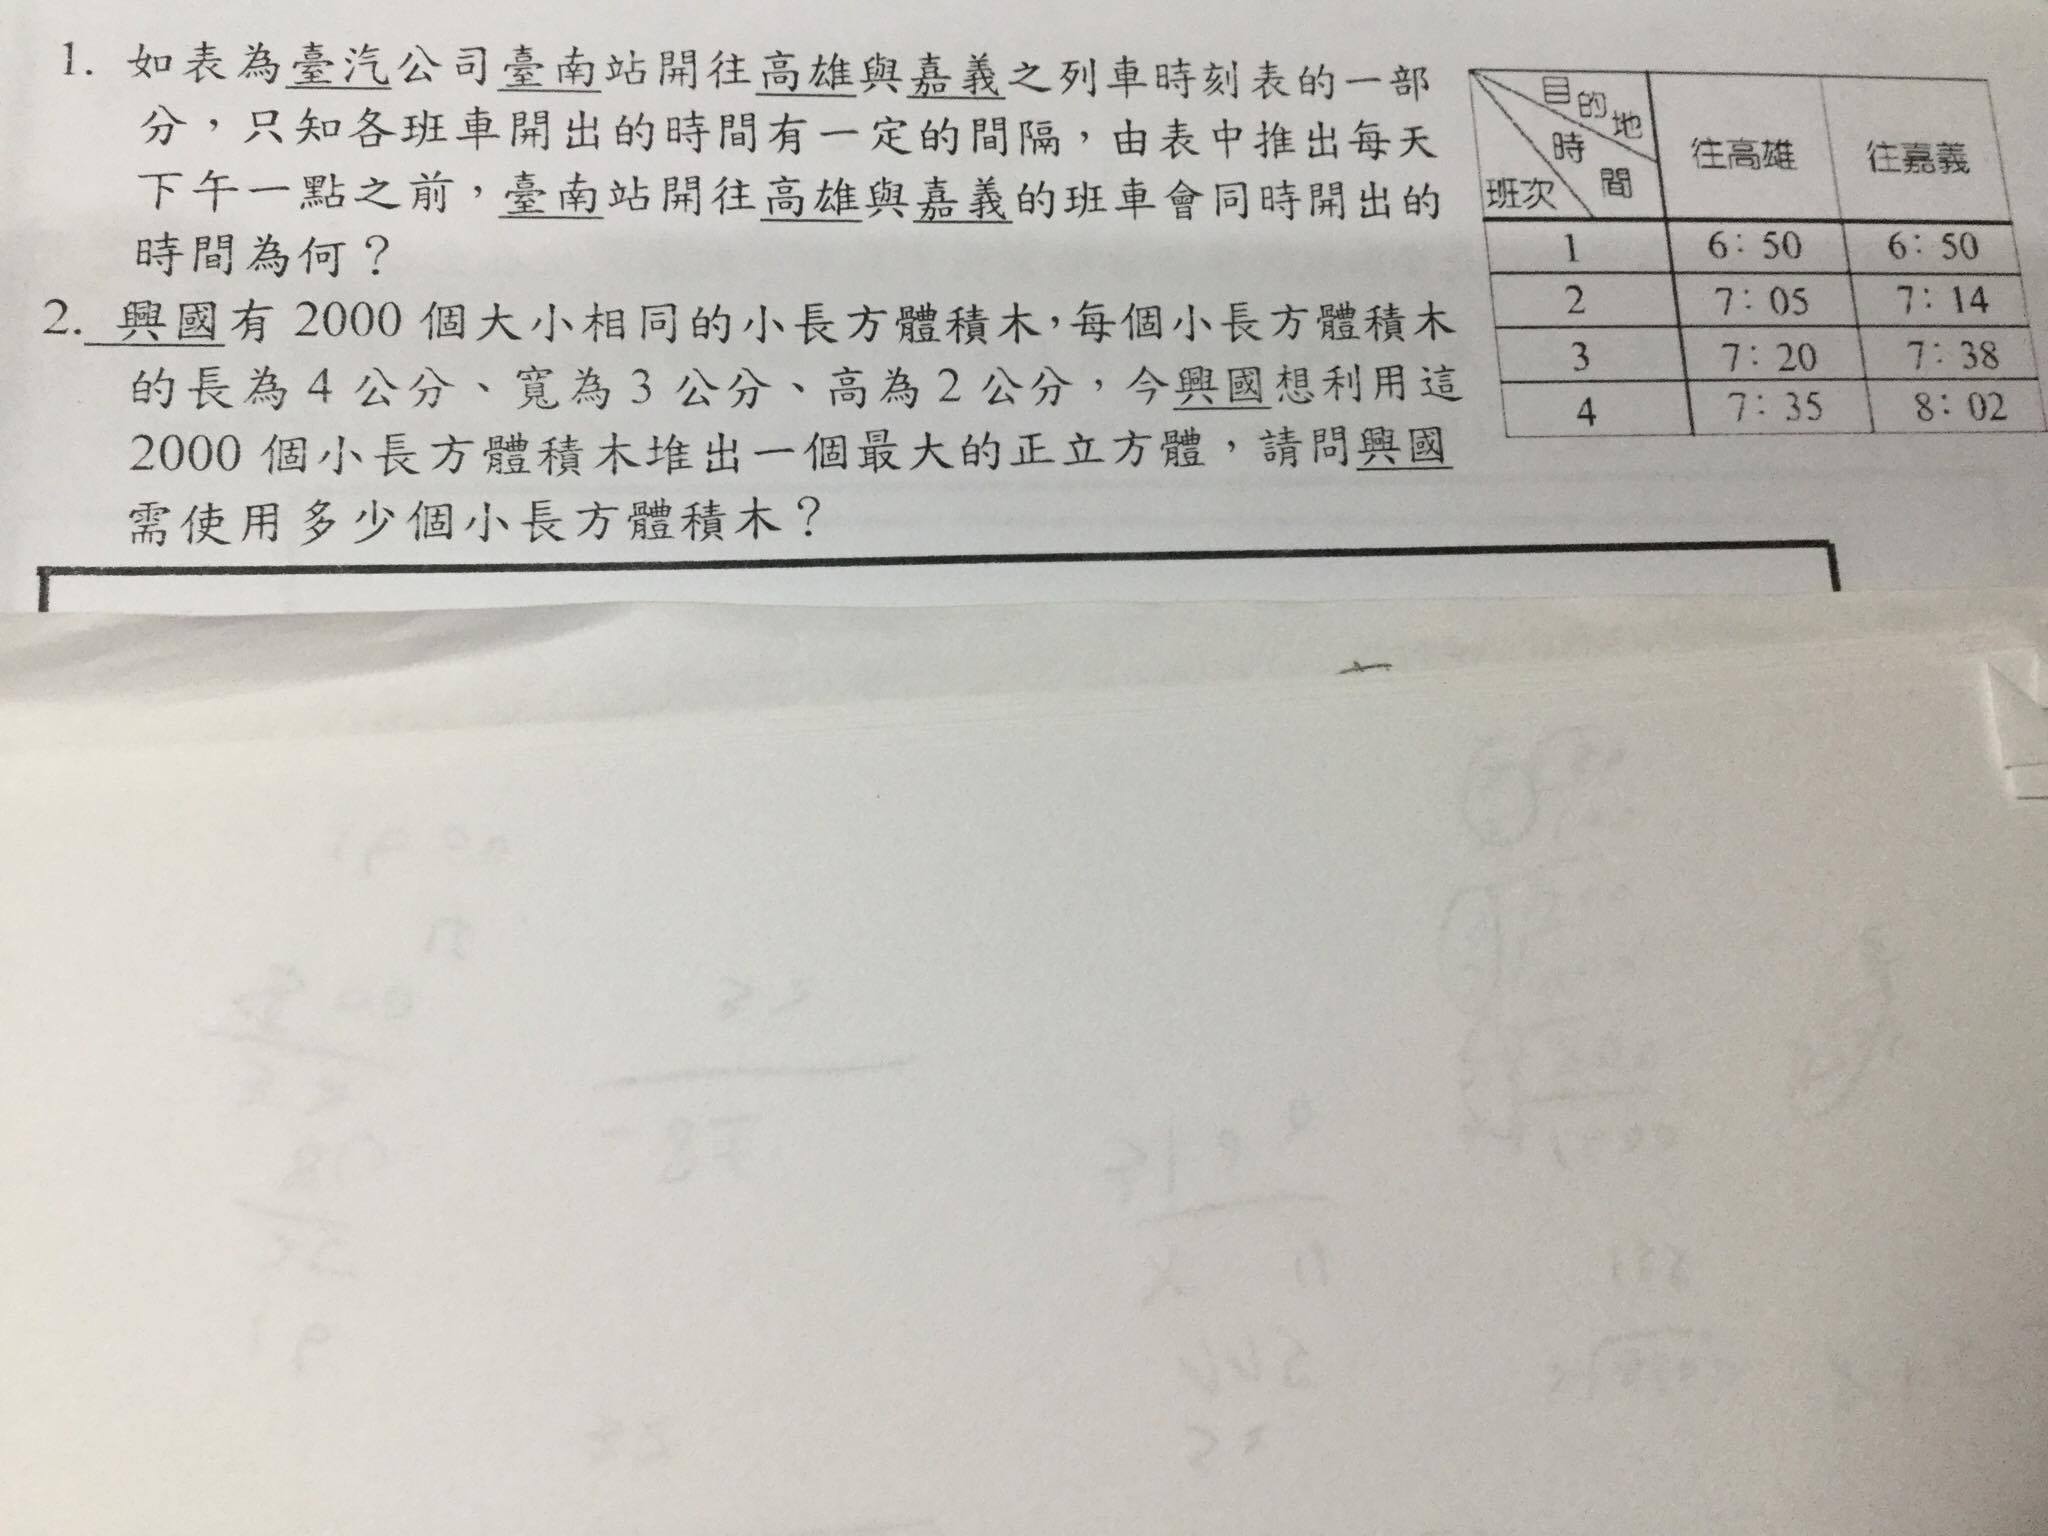 1. 如表為臺汽公司臺南站開往高雄與嘉義之列車時刻表的一部
分，只知各班車開出的時間有一定的間隔，由表中推出每天
下午一點之前，臺南站開往高雄與嘉義的班車會同時開出的
時間為何？
2. 興國有 2000 個大小相同的小長方體積木，每個小長方體積木
的長為 4 公分、寬為 3 公分、高為 2 公分，今興國想利用這
2000 個小長方體積木堆出一個最大的正立方體，請問興國
需使用多少個小長方體積木？
目的地
時間
班次
往高雄 往嘉義
1 6：50 6：50
2 7：05 7：14
3 7：20 7：38
4 7：35 8：02